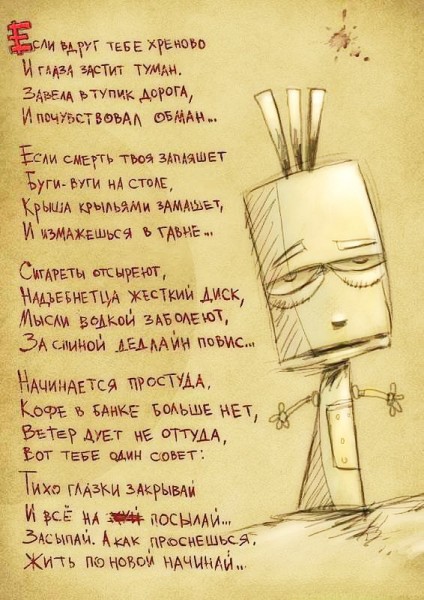 Если вдруг тебе хреново
И глаза застит туман.
Завела в тупик дорога,
И почувствовал обман...
Если смерть твоя запляшет
Буги-вуги на столе,
Крыша крыльями замашет,
И измажешься в гавне...
Сигареты отсыреют,
Надъебнетца жесткий диск,
Мысли водкой заболеют,
За спиной дедлайн повис...
Начинается простуда,
Кофе в банке больше нет,
Ветер дует не оттуда,
Вот тебе один совет:
Тихо глазки закрывай
И всё на посылай...
Засыпай. А как проснешься,
Жить по новой начинай...